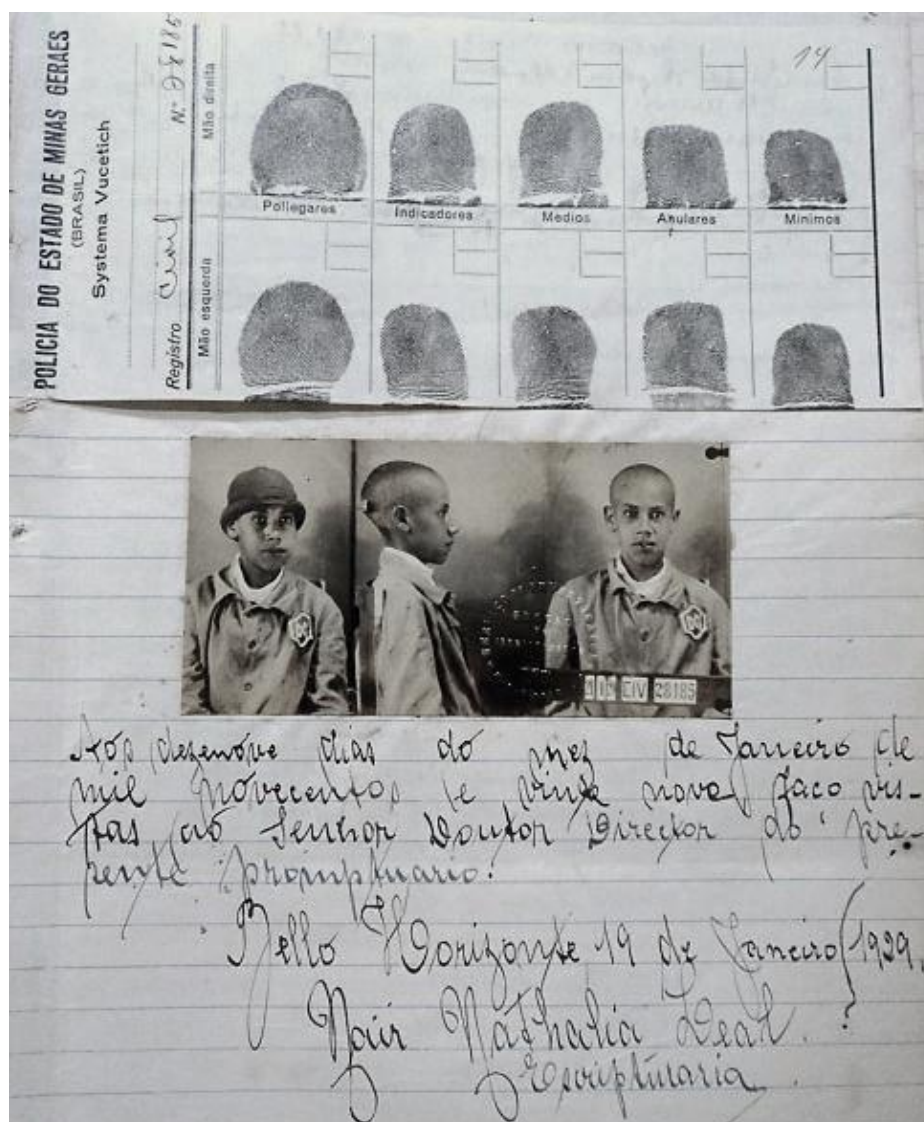 POLICIA DO ESTADO DE MINAS GERAES
(BRASIL)
Systema Vucetich
Registro Civil Nº 28185
Mão direita
Mão esquerda
14
Pollegares Indicadores Medios Anulares Minimos
CIV 28185
Aos dezenove dias do mez de Janeiro de
mil novecentos e vinte nove faço vis-
tas ao Senhor Doutor Director do pre-
sente promptuario.
Bello Horizonte 19 de Janeiro 1929.
Nair Nathalia Leal.
Escripturaria